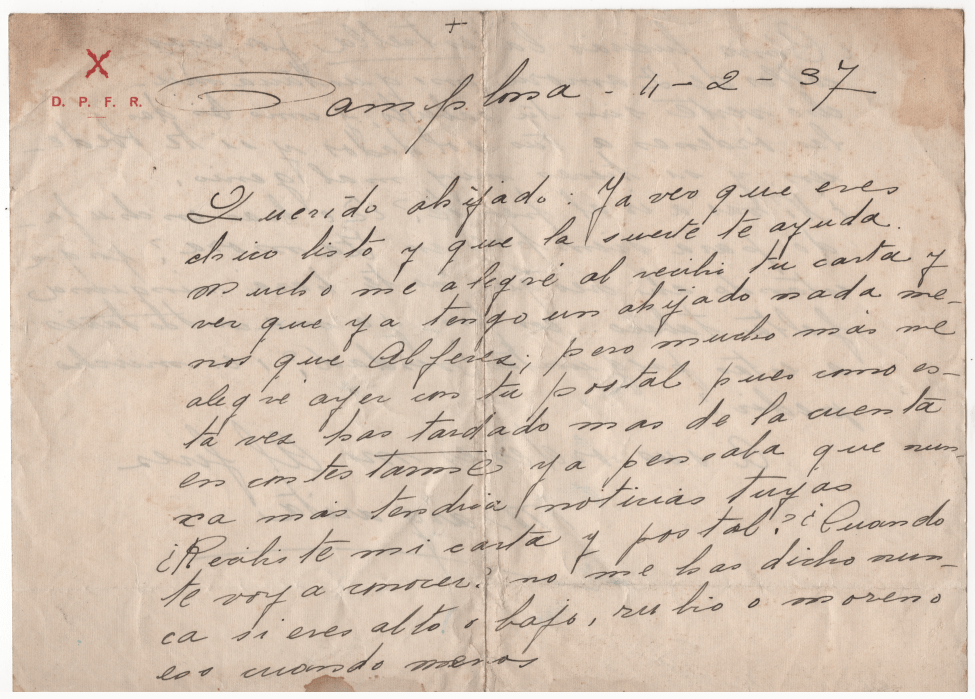 D. P. F. R.
Pamplona - 11 - 2 - 37
Querido ahijado: Ya veo que eres
chico listo y que la suerte te ayuda.
Mucho me alegré al recibir tu carta y
ver que ya tengo un ahijado nada me-
nos que Alferez; pero mucho más me
alegré ayer con tu postal pues como es-
ta vez has tardado mas de la cuenta
en contestarme ya pensaba que nun-
ca mas tendria noticias tuyas
¿Recibiste mi carta y postal? ¿Cuando
te voy a conocer? no me has dicho nun-
ca si eres alto o bajo, rubio o moreno
eso cuando menos